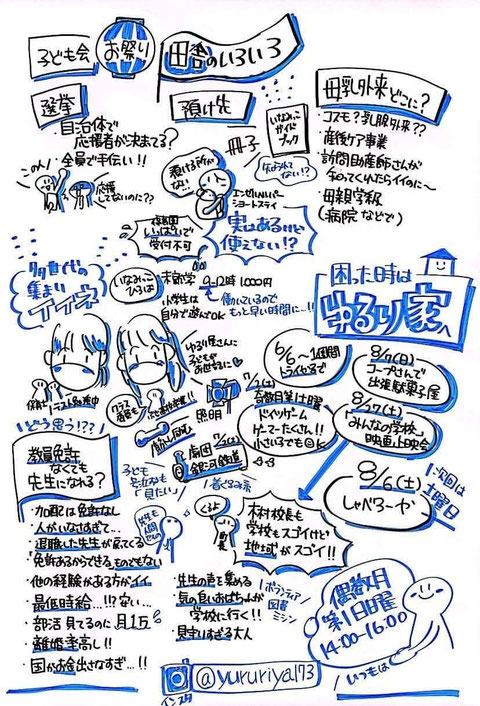 子ども会
お祭り
田舎のいろいろ
選挙
自治体で
応援者が決まってる?
全員で手伝い!!
この人!
応援
してないのに??
預け先
預ける所が
ない!
冊子
いなみっこ
ガイド
ブック
エンゼルヘルパー
ショートステイ
保育園
いっぱいで
受付不可
実はあるけど
使えない!?
母乳外来どこに?
・コスモ?乳腺外来??
・産後ケア事業
・訪問助産師さんが
来てくれたらイイのに〜
・母親学級
(病院などで)
多世代の
集まり
イイネ
いなみっこ
ひろば
9〜12時 1,000円
小学生は
自分で遊んでOK
働いているので
もっと早い時間に…!!
困った時は
ゆるり家へ
ゆるり屋さんに
子どもが
照明
劇団
銀河鉄道
子ども
「見たい」
6/6〜1週間
トライやるで
奇数月第1土曜
ドイツゲーム
ゲーマーたくさん!!
小さい子でもOK
8/7(日)
コープさんで
出張駄菓子屋
8/27(土)
「みんなの学校」
映画上映会
8/6(土)
しゃべろーや
次回は
土曜日
どう思う!??
教員免許
なくても
先生になれる?
・加配は免許なし
・人がいなさすぎて…
・退職した先生が戻ってくる
・免許あるからできるものでもない
・他の経験がある方がイイ
・最低時給…!?ない…
・部活見てるのに月1万
・離婚率高し!!
・国がお金出さなすぎ…!!
くるよ
町長
木村校長も
学校もスゴイけど
地域がスゴイ!!
・先生の声を集める
・気の良いおばちゃんが
学校に行く!!
・見守りすぎる大人
ボランティア
図書
ミシン
偶数月
第1日曜
14:00-16:00
いつもは
インスタ
@yururiya173